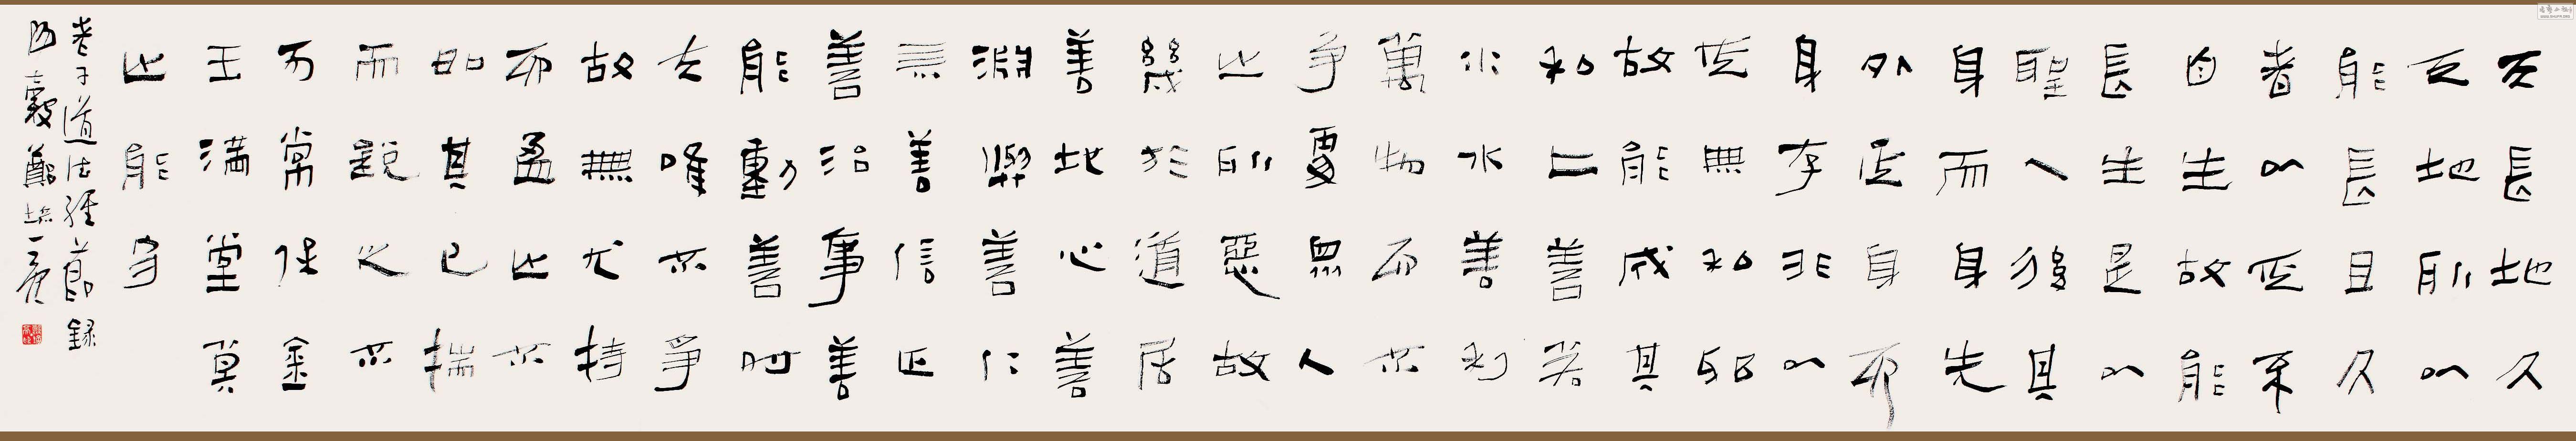 天長地久
天地所以
能長且久
者以其不
自生故能
長生是以
聖人後其
身而身先
外其身而
身存非以
其無私邪
故能成其
私上善若
水水善利
萬物而不
爭處眾人
之所惡故
幾於道居
善地心善
淵與善仁
言善信正
善治事善
能動善時
夫唯不爭
故無尤持
而盈之不
如其已揣
而銳之不
可常保金
玉滿堂莫
之能守
老子道德經節錄
鄭培亮